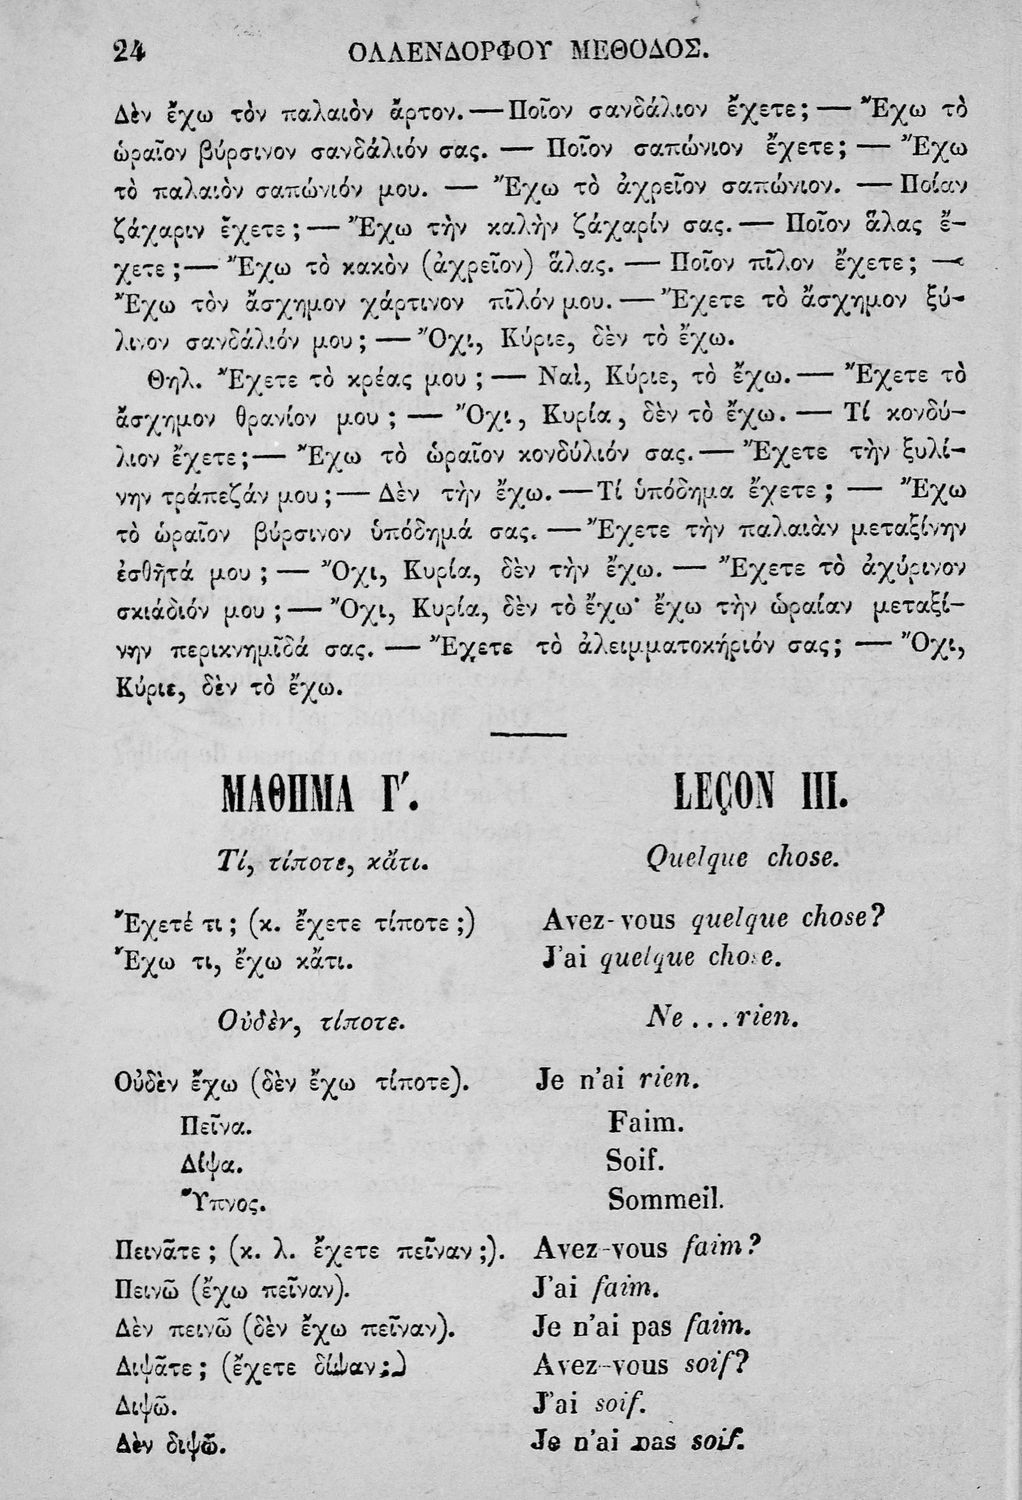 24 ΟΛΛΕΝΔΟΡΦΟΥ ΜΕΘΟΔΟΣ.
Δὲν ἔχω τὸν παλαιὸν ἄρτον. — Ποῖον σανδάλιον ἔχετε; — Ἔχω τὸ
ὡραῖον βύρσινον σανδάλιόν σας. — Ποῖον σαπώνιον ἔχετε; — Ἔχω
τὸ παλαιὸν σαπώνιόν μου. — Ἔχω τὸ ἀχρεῖον σαπώνιον. — Ποίαν
ζάχαριν ἔχετε; — Ἔχω τὴν καλὴν ζάχαρίν σας. — Ποῖον ἅλας ἔ-
χετε; — Ἔχω τὸ κακὸν (ἀχρεῖον) ἅλας. — Ποῖον πῖλον ἔχετε; —
Ἔχω τὸν ἄσχημον χάρτινον πῖλόν μου. — Ἔχετε τὸ ἄσχημον ξύ-
λινον σανδάλιόν μου; — Ὄχι, Κύριε, δὲν τὸ ἔχω.
Θηλ. Ἔχετε τὸ κρέας μου; — Ναὶ, Κύριε, τὸ ἔχω. — Ἔχετε τὸ
ἄσχημον θρανίον μου; — Ὄχι, Κυρία, δὲν τὸ ἔχω. — Τί κονδύ-
λιον ἔχετε; — Ἔχω τὸ ὡραῖον κονδύλιόν σας. — Ἔχετε τὴν ξυλί-
νην τράπεζάν μου; — Δὲν τὴν ἔχω. — Τί ὑπόδημα ἔχετε; — Ἔχω
τὸ ὡραῖον βύρσινον ὑπόδημά σας. — Ἔχετε τὴν παλαιὰν μεταξίνην
ἐσθῆτά μου; — Ὄχι, Κυρία, δὲν τὴν ἔχω. — Ἔχετε τὸ ἀχύρινον
σκιάδιόν μου; — Ὄχι, Κυρία, δὲν τὸ ἔχω· ἔχω τὴν ὡραίαν μεταξί-
νην περικνημῖδά σας. — Ἔχετε τὸ ἀλειμματοκήριόν σας; — Ὄχι,
Κύριε, δὲν τὸ ἔχω.
ΜΑΘΗΜΑ Γ΄. LEÇON III.
Τί, τίποτε, κᾄτι. Quelque chose.
Ἔχετέ τι; (κ. ἔχετε τίποτε;) Avez-vous quelque chose?
Ἔχω τι, ἔχω κᾄτι. J'ai quelque chose.
Οὐδὲν, τίποτε. Ne ... rien.
Οὐδὲν ἔχω (δὲν ἔχω τίποτε). Je n'ai rien.
Πεῖνα. Faim.
Δίψα. Soif.
Ὕπνος. Sommeil.
Πεινᾶτε; (κ. λ. ἔχετε πεῖναν;). Avez-vous faim?
Πεινῶ (ἔχω πεῖναν). J'ai faim.
Δὲν πεινῶ (δὲν ἔχω πεῖναν). Je n'ai pas faim.
Διψᾶτε; (ἔχετε δίψαν;) Avez-vous soif?
Διψῶ. J'ai soif.
Δὲν διψῶ. Je n'ai pas soif.